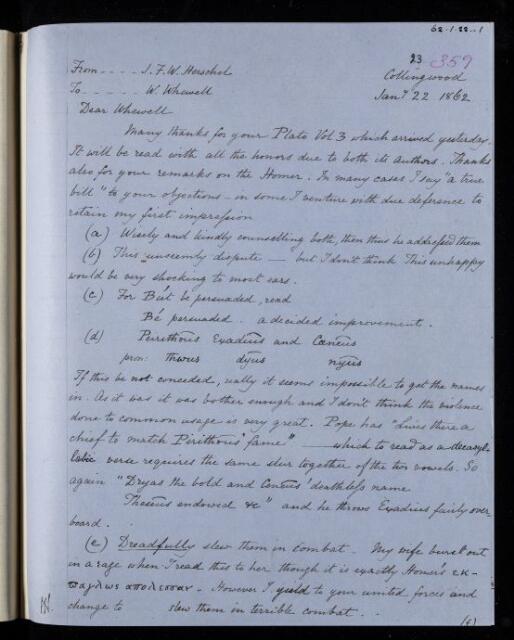 62-1-22-1
23 359
From - - - - J. F. W. Herschel
Collingwood
To - - - - W. Whewell
Jany 22 1862
Dear Whewell
Many thanks for your Plato Vol 3 which arrived yesterday.
It will be read with all the honors due to both its authors. Thanks
also for your remarks on the Homer. In many cases I say "a true
bill" to your objections - in some I venture with due deference to
retain my first impression
(a) Wisely and kindly counselling both, then thus he addressed them
(b) This unseemly dispute — but I don't think This unhappy
would be very shocking to most ears.
(c) For Bu't be persuaded, read
Be' persuaded. a decided improvement.
(d) Peirithous Exadius and Caneus
pron: thwus dyus nyus
If this be not conceded, really it seems impossible to get the names
in. As it was it was bother enough and I don't think the violence
done to common usage is very great. Pope has "Lives there a
chief to match Pirithous' fame" — which to read as a decasyl-
labic verse requires the same slur together of the two vowels. So
again "Dryas the bold and Ceneus' deathless name
Theseus endowed &c" and he throws Exadius fairly over
board.
(e) Dreadfully slew them in combat. My wife burst out
in a rage when I read this to her though it is exactly Homer's εκ-
παγλως απολεσσαν. However I yield to your united forces and
change to slew them in terrible combat.